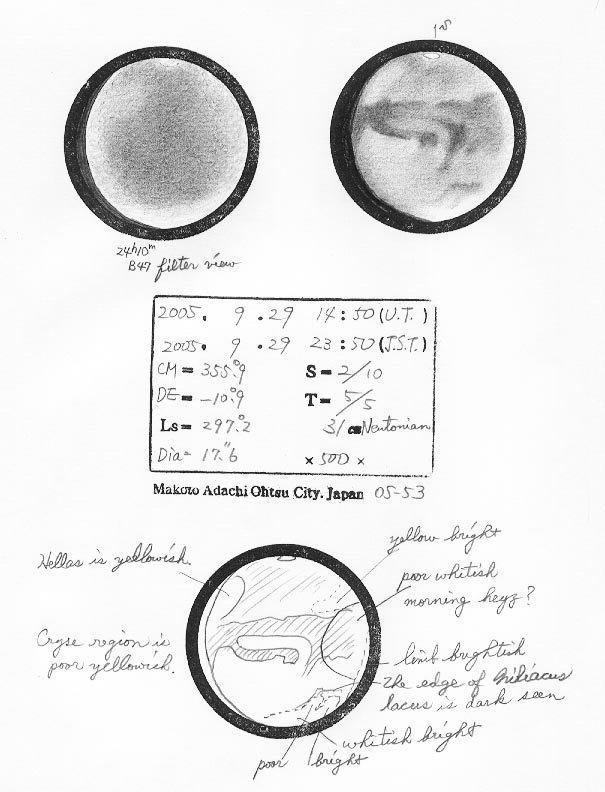 24h10m
B47 filter view
2005. 9 . 29 14 : 50 (U.T.)
2005. 9 . 29 23 : 50 (J.S.T.)
CM = 355.°9 S = 2/10
DE = -10.°9 T = 5/5
Ls = 297.°2 31 cm Newtonian
Dia = 17."6 × 500 ×
Makoto Adachi Ohtsu City. Japan 05-53
Hellas is yellowish.
yellow bright
poor whitish
morning heyz?
Cryse region is
poor yellowish.
limb brightish
The edge of Niliacus
lacus is dark seen
whitish bright
poor bright